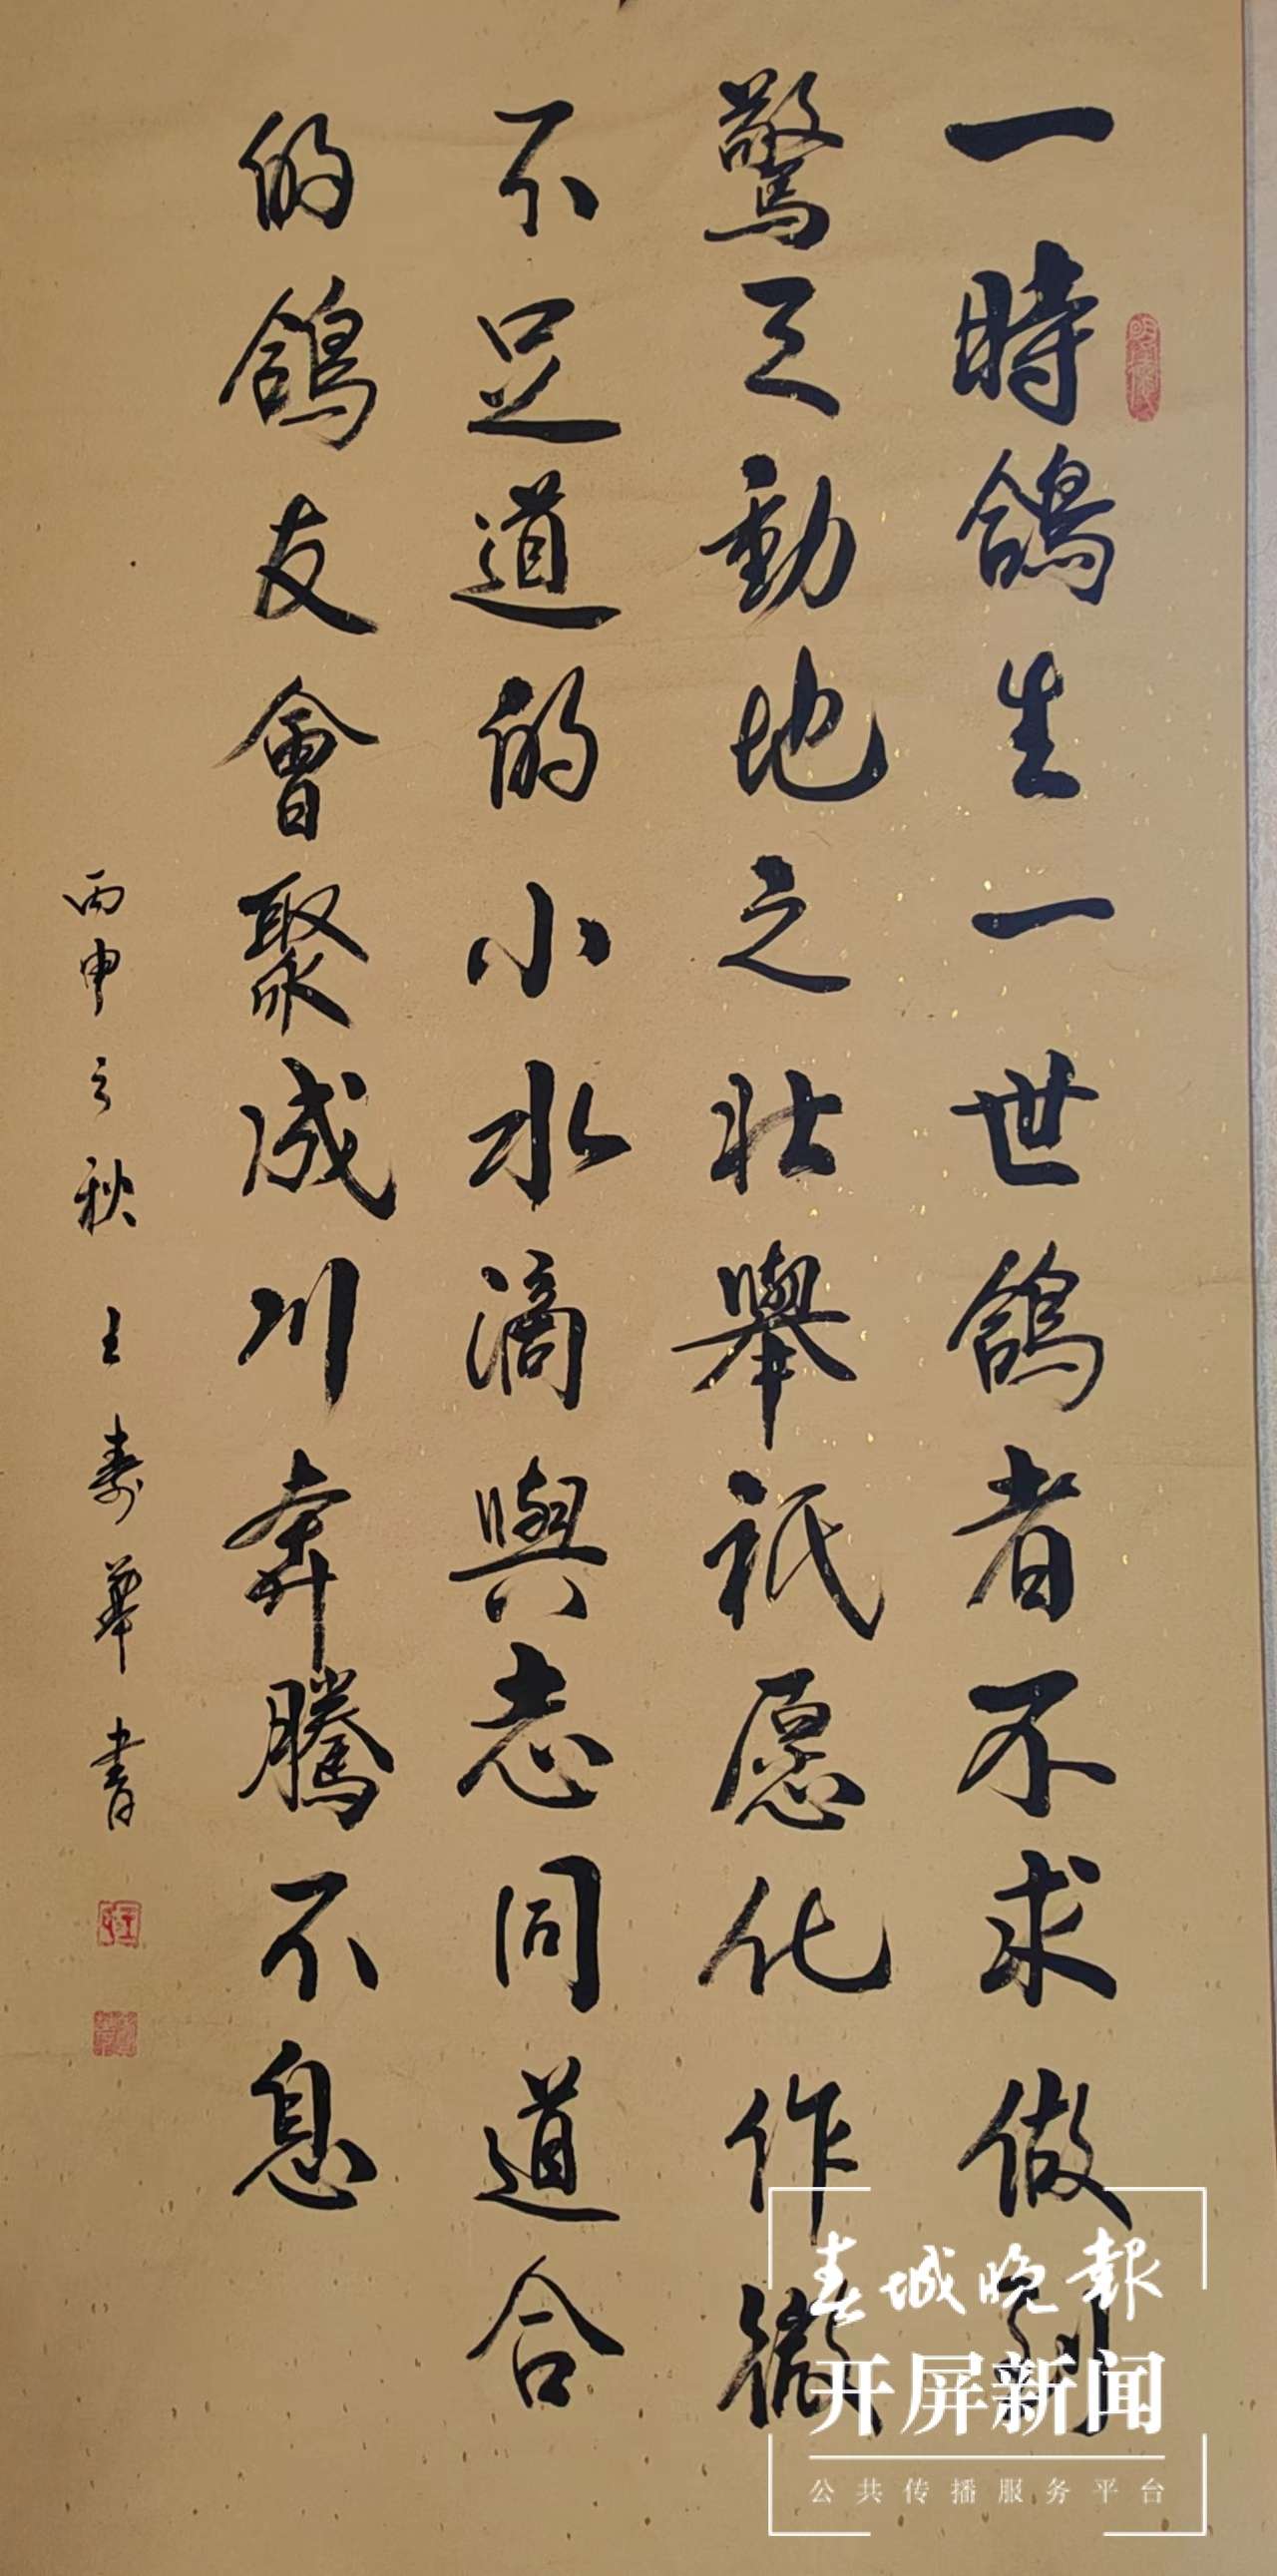 一時鴿生一世鴿者不求做
驚天動地之壯舉祇愿化作微
不足道的小水滴與志同道合
的鴿友會聚成川奔騰不息
丙申之秋 王壽華書
春城晚報
开屏新闻
公共传播服务平台